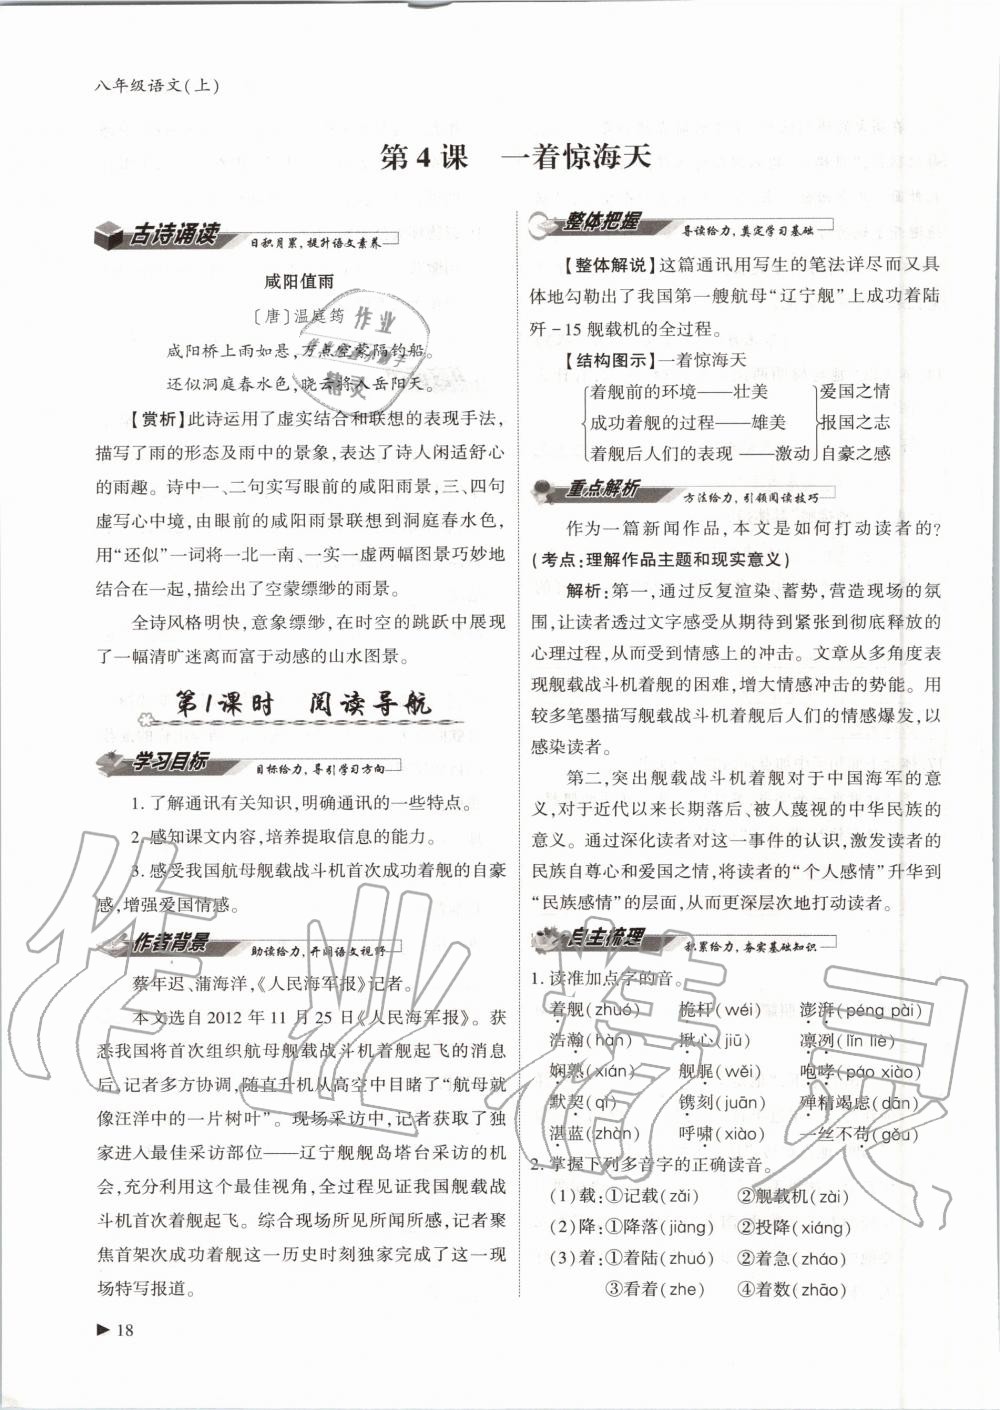 八年级语文(上)
第4课　一着惊海天
古诗诵读 日积月累,提升语文素养
咸阳值雨
〔唐〕温庭筠
咸阳桥上雨如悬,万点空蒙隔钓船。
还似洞庭春水色,晓云将入岳阳天。
【赏析】此诗运用了虚实结合和联想的表现手法,
描写了雨的形态及雨中的景象,表达了诗人闲适舒心
的雨趣。诗中一、二句实写眼前的咸阳雨,三、四句
虚写心中境,由眼前的咸阳雨景联想到洞庭春水色,
用“还似”一词将一北一南、一实一虚两幅图景巧妙地
结合在一起,描绘出了空蒙缥缈的雨景。
全诗风格明快,意象缥缈,在时空的跳跃中展现
了一幅清旷迷离而富于动感的山水图景。
第1课时　阅读导航
学习目标 目标给力,导引学习方向
1. 了解通讯有关知识,明确通讯的一些特点。
2. 感知课文内容,培养提取信息的能力。
3. 感受我国航母舰载战斗机首次成功着舰的自豪
感,增强爱国情感。
作者背景 助读给力,开阔语文视野
蔡年迟、蒲海洋,《人民海军报》记者。
本文选自 2012 年 11 月 25 日《人民海军报》。获
悉我国将首次组织航母舰载战斗机着舰起飞的消息
后,记者多方协调,随直升机从高空中目睹了“航母就
像汪洋中的一片树叶”。现场采访中,记者获取了独
家进入最佳采访部位——辽宁舰舰岛塔台采访的机
会,充分利用这个最佳视角,全过程见证我国舰载战
斗机首次着舰起飞。综合现场所见所闻所感,记者聚
焦首架次成功着舰这一历史时刻独家完成了这一现
场特写报道。
▶ 18
整体把握 导读给力,奠定学习基础
【整体解说】这篇通讯用写生的笔法详尽而又具
体地勾勒出了我国第一艘航母“辽宁舰”上成功着陆
歼－15 舰载机的全过程。
【结构图示】一着惊海天
着舰前的环境——壮美 爱国之情
成功着舰的过程——雄美 报国之志
着舰后人们的表现 ——激动 自豪之感
重点解析 方法给力,引领阅读技巧
作为一篇新闻作品,本文是如何打动读者的?
(考点:理解作品主题和现实意义)
解析:第一,通过反复渲染、蓄势,营造现场的氛
围,让读者透过文字感受从期待到紧张到彻底释放的
心理过程,从而受到情感上的冲击。文章从多角度表
现舰载战斗机着舰的困难,增大情感冲击的势能。用
较多笔墨描写舰载战斗机着舰后人们的情感爆发,以
感染读者。
第二,突出舰载战斗机着舰对于中国海军的意
义,对于近代以来长期落后、被人蔑视的中华民族的
意义。通过深化读者对这一事件的认识,激发读者的
民族自尊心和爱国之情,将读者的“个人感情”升华到
“民族感情”的层面,从而更深层次地打动读者。
自主梳理 积累给力,夯实基础知识
1. 读准加点字的音。
着舰(zhuó)　桅杆(wéi)　澎湃(péng pài)
浩瀚(hàn)　揪心(jiū)　凛冽(lǐn liè)
娴熟(xián)　舰艉(wěi)　咆哮(páo xiào)
默契(qì)　镌刻(juān)　殚精竭虑(dān)
湛蓝(zhàn)　呼啸(xiào)　一丝不苟(gǒu)
2. 掌握下列多音字的正确读音。
(1)载:①记载(zǎi)　②舰载机(zài)
(2)降:①降落(jiàng)　②投降(xiáng)
(3)着:①着陆(zhuó)　②着急(zháo)
③看着(zhe)　④着数(zhāo)
作业
精灵
作业精灵